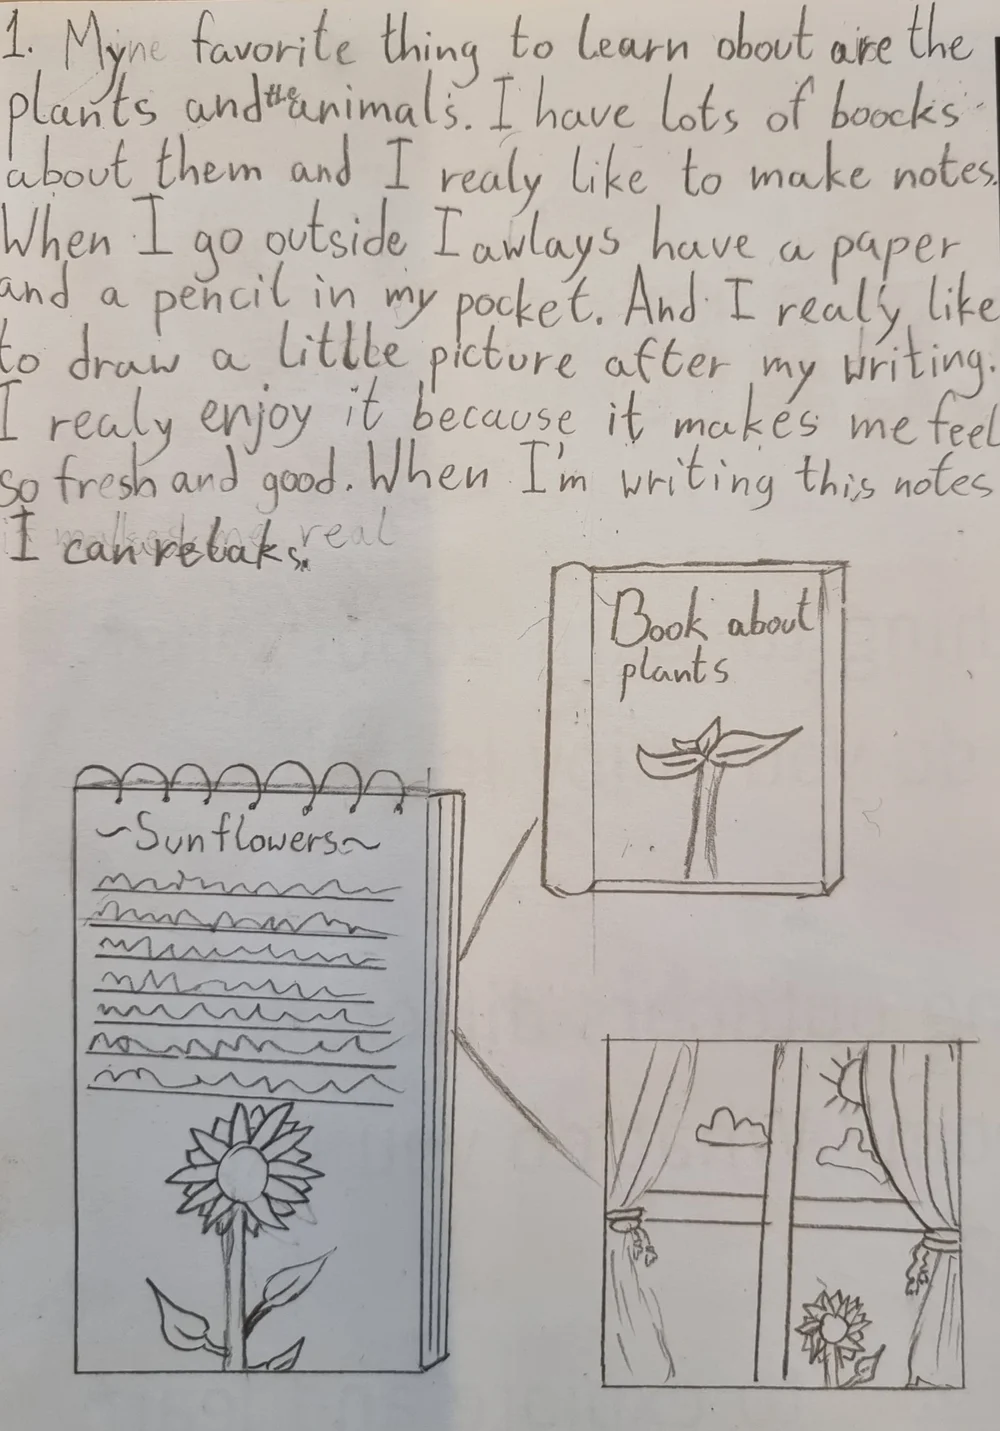 1. Myne favorite thing to learn obout are the
plants and the animals. I have lots of boocks
about them and I realy like to make notes.
When I go outside I awlays have a paper
and a pencil in my pocket. And I realy like
to draw a littlle picture after my writing.
I realy enjoy it because it makes me feel
so fresh and good. When I'm writing this notes
I can relaks.
real
Book about
plants
~Sunflowers~